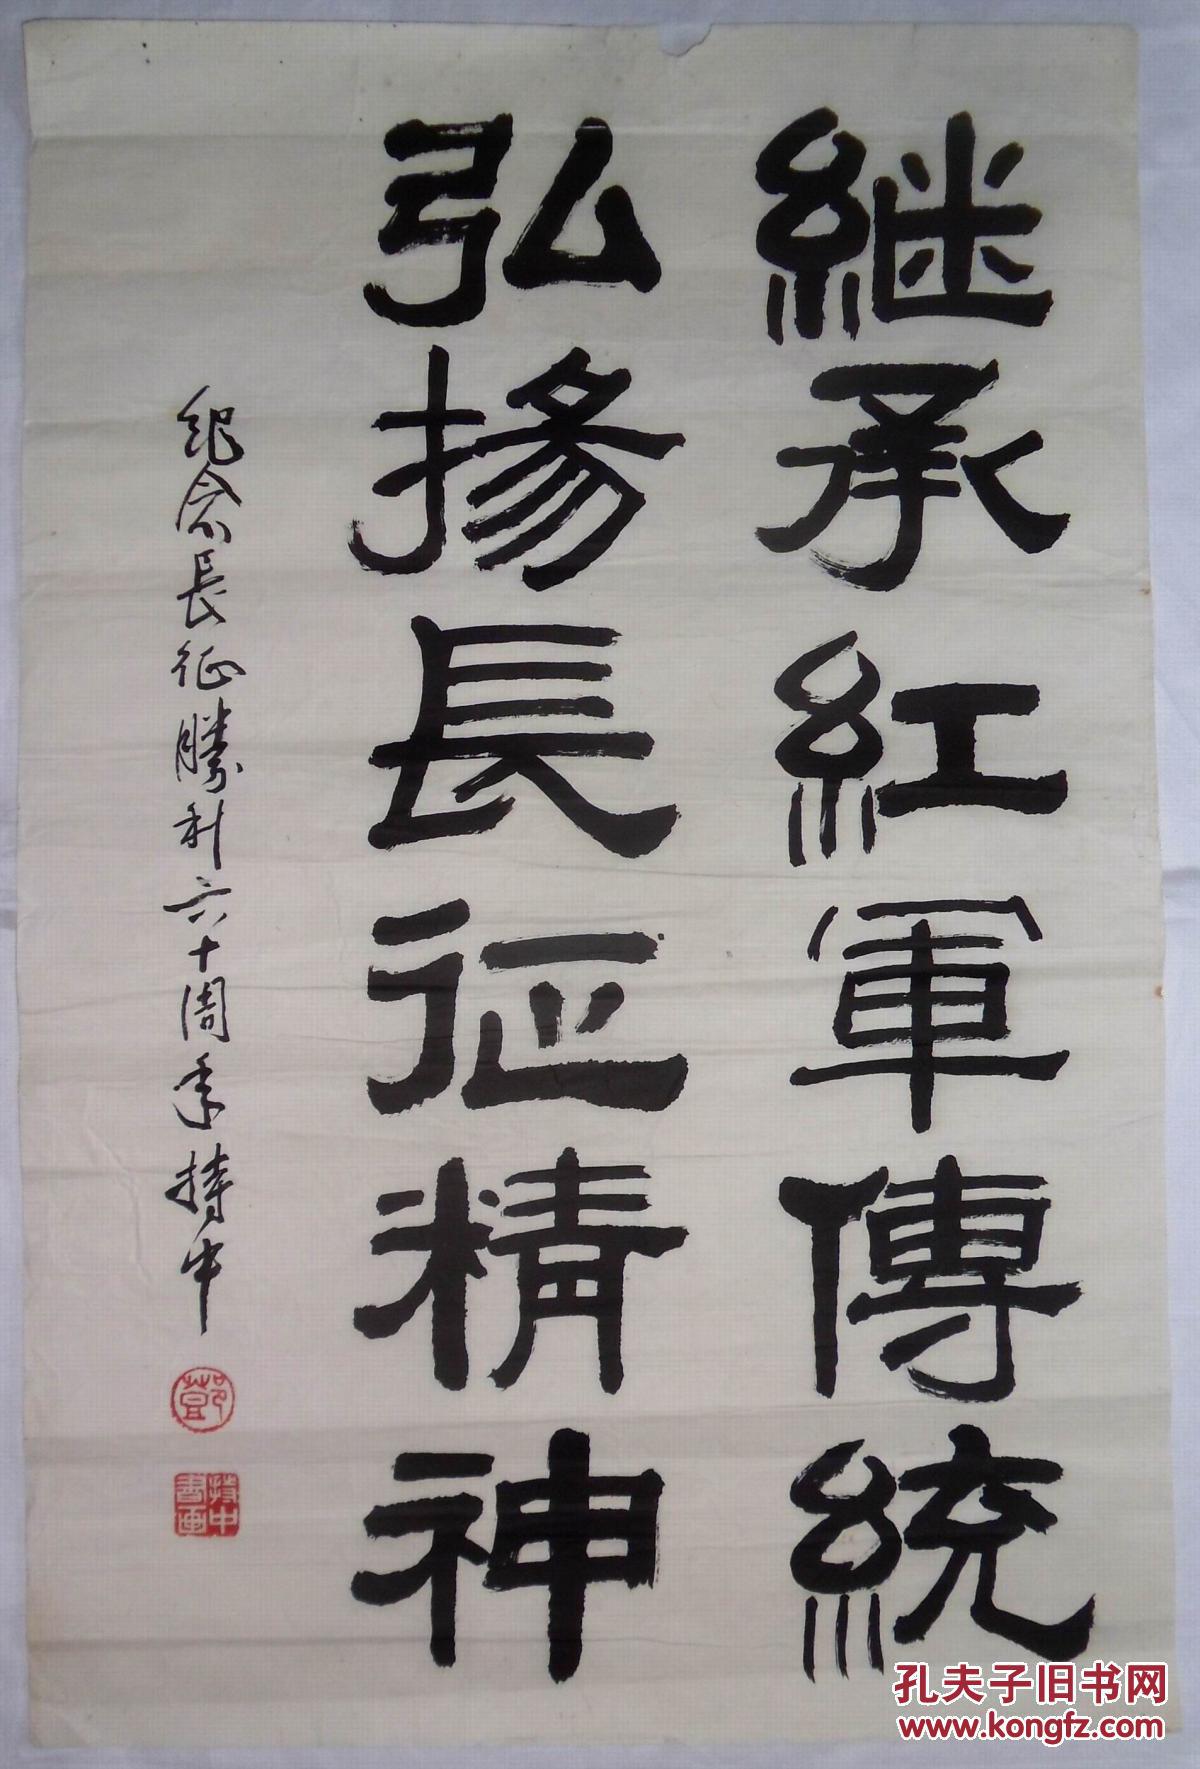 继承紅軍傳統
弘揚長征精神
紀念長征勝利六十周年持中
持中書画
孔夫子旧书网
www.kongfz.com